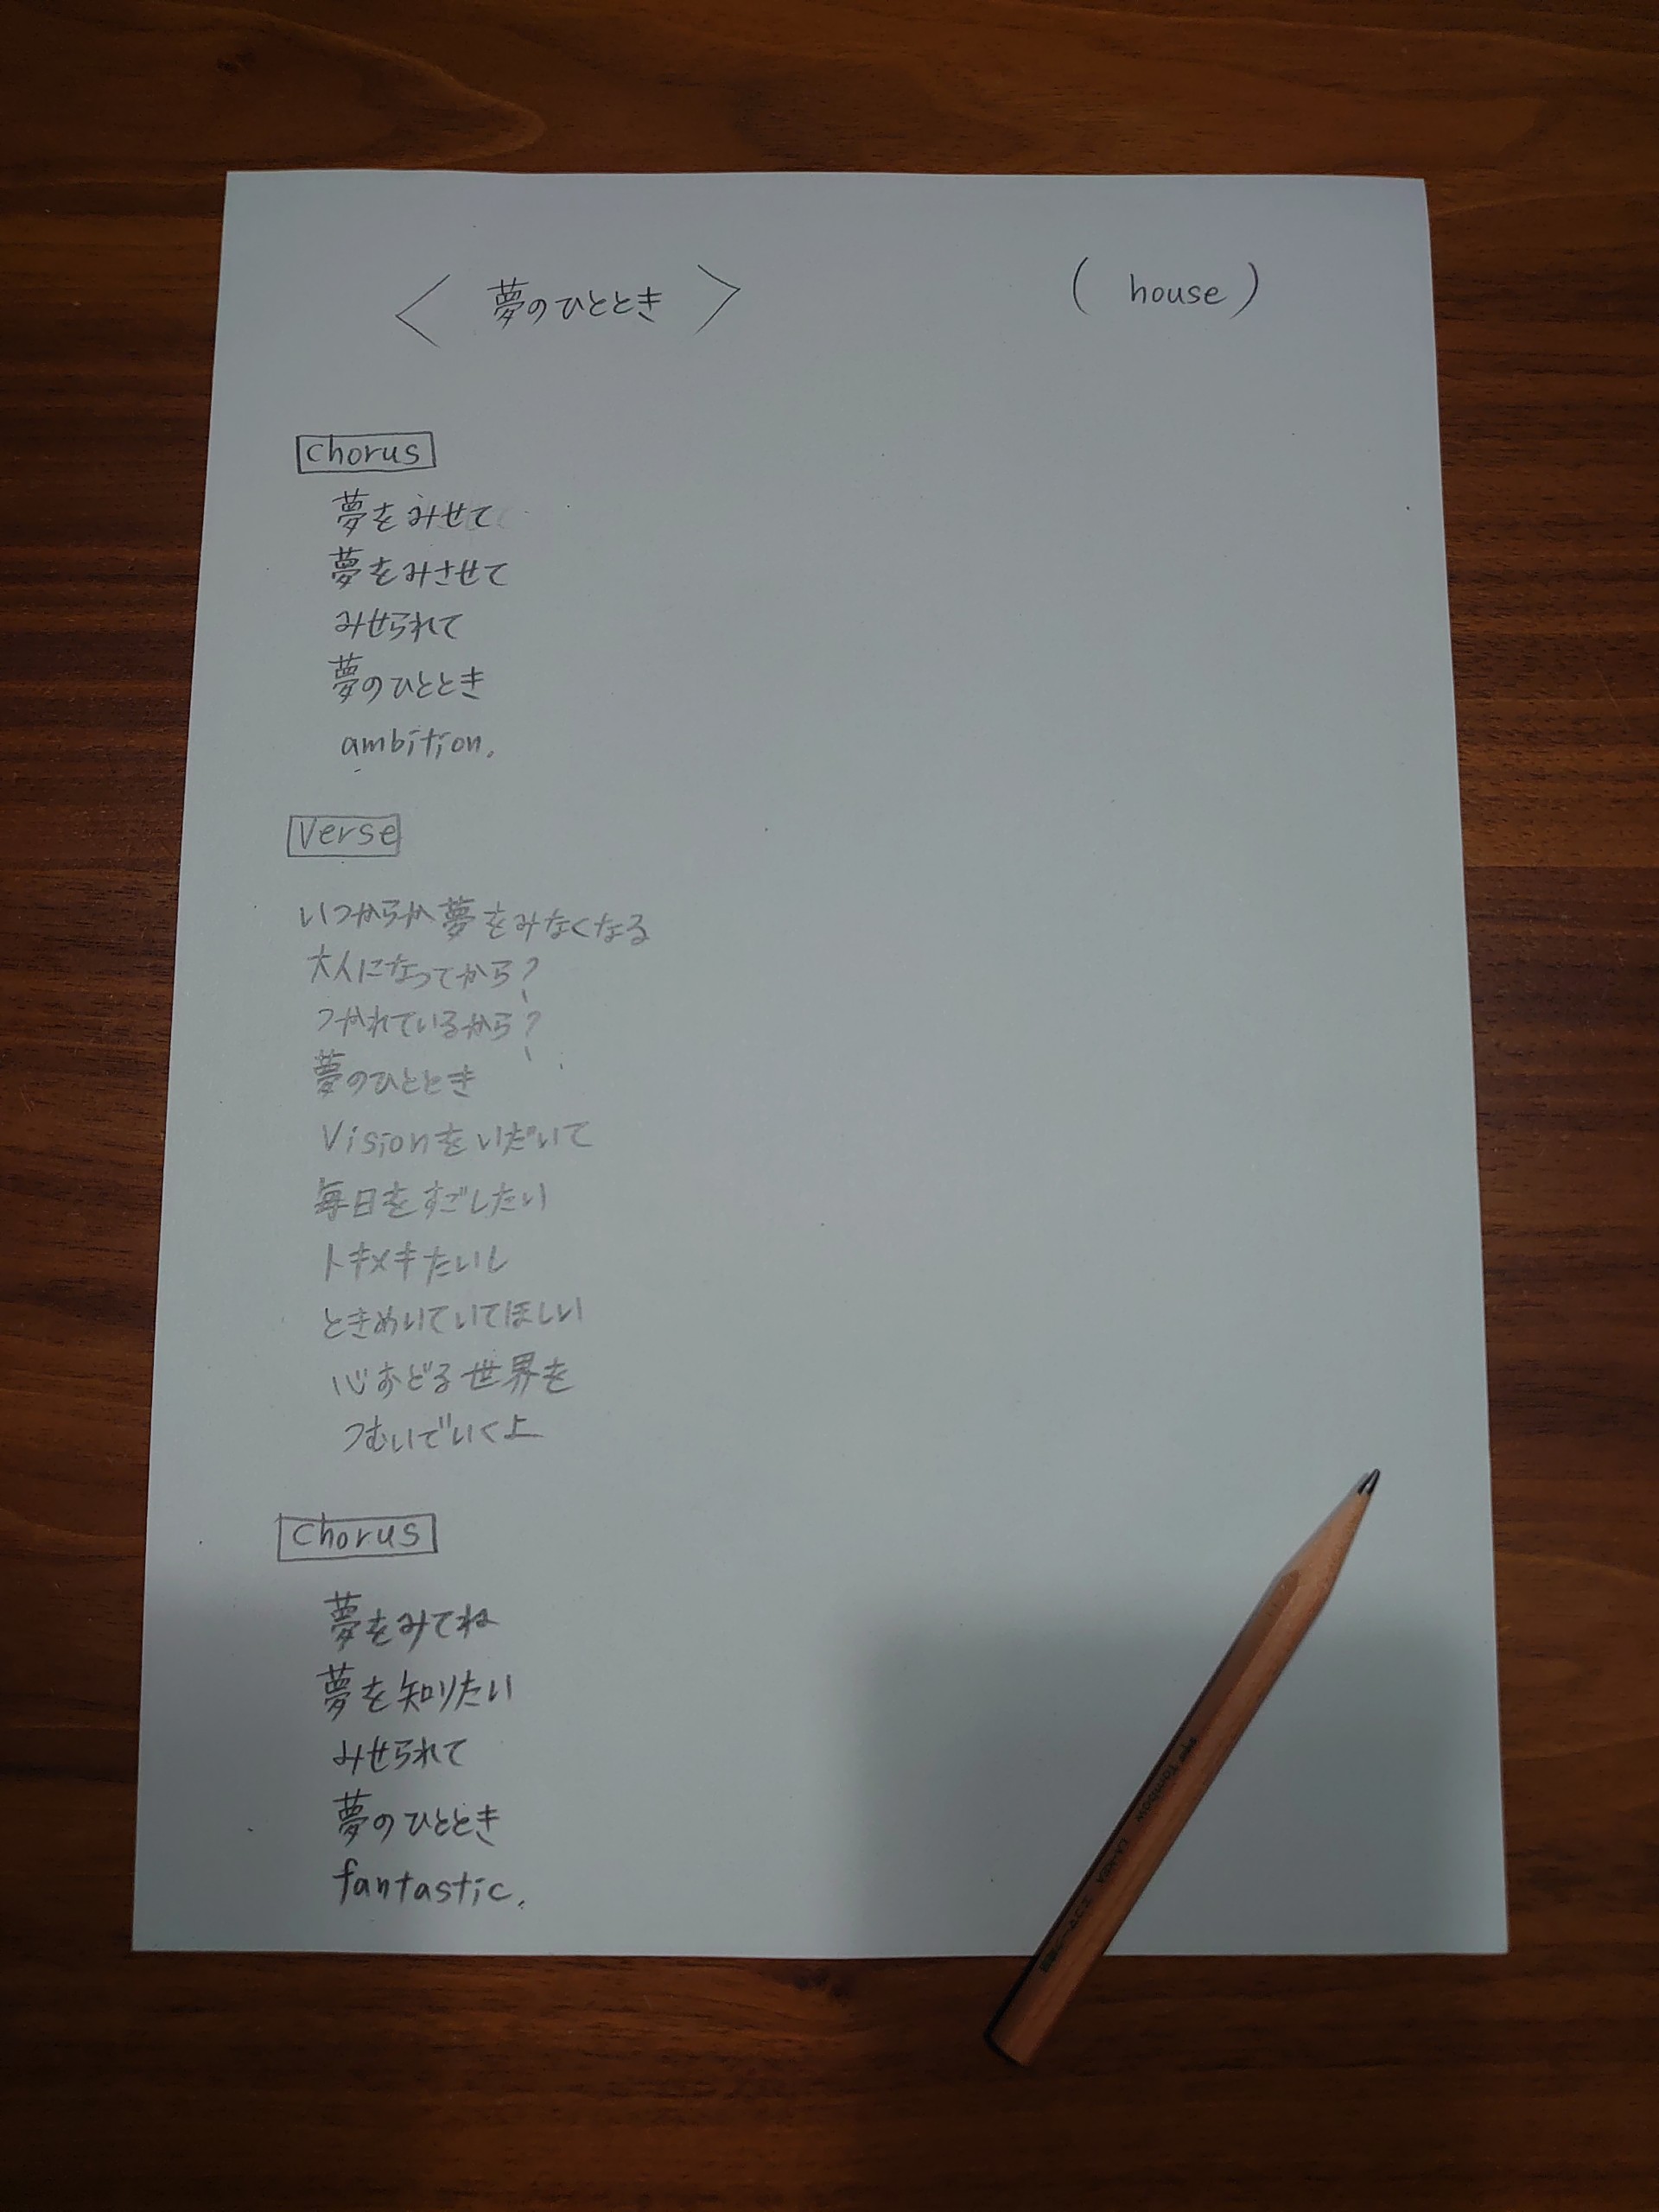 〈 夢のひととき 〉 ( house )
chorus
夢をみせて
夢をみさせて
みせられて
夢のひととき
ambition.
Verse
いつからか夢をみなくなる
大人になってから?
つかれているから?
夢のひととき
Visionをいだいて
毎日をすごしたい
トキメキたいし
ときめいていてほしい
心おどる世界を
つむいでいく上
chorus
夢をみてね
夢を知りたい
みせられて
夢のひととき
fantastic.
Tombow